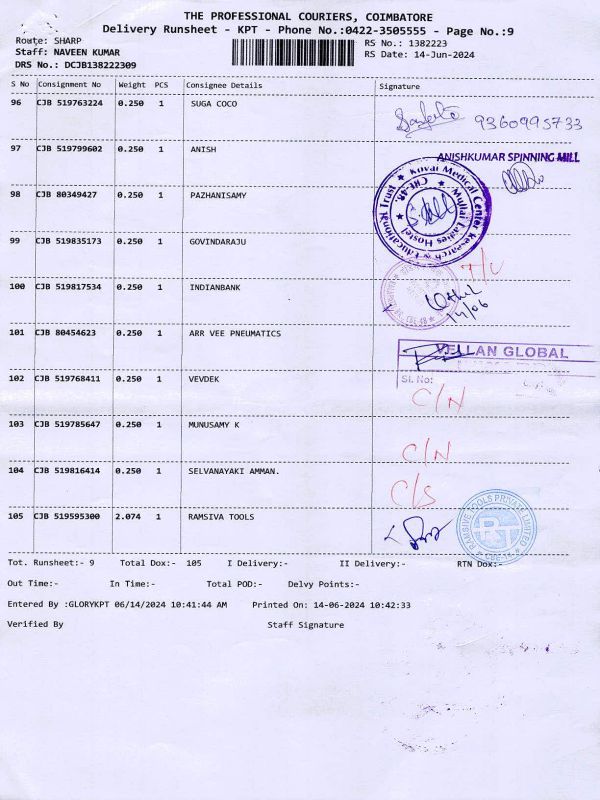 THE PROFESSIONAL COURIERS, COIMBATORE
Delivery Runsheet - KPT - Phone No.:0422-3505555 - Page No.:9
Route: SHARP
RS No.: 1382223
Staff: NAVEEN KUMAR
RS Date: 14-Jun-2024
DRS No.: DCJB138222309
S No Consignment No Weight PCS Consignee Details Signature
96 CJB 519763224 0.250 1 SUGA COCO
9360995733
97 CJB 519799602 0.250 1 ANISH
ANISHKUMAR SPINNING MILL
98 CJB 80349427 0.250 1 PAZHANISAMY
Kovai Medical Center Research & Educational Trust
Mullai Ladies Hostel
CBE-48.
99 CJB 519835173 0.250 1 GOVINDARAJU
100 CJB 519817534 0.250 1 INDIANBANK
14/06
101 CJB 80454623 0.250 1 ARR VEE PNEUMATICS
VELLAN GLOBAL
Sl. No:
102 CJB 519768411 0.250 1 VEVDEK
C/N
103 CJB 519785647 0.250 1 MUNUSAMY K
C/N
104 CJB 519816414 0.250 1 SELVANAYAKI AMMAN.
C/S
105 CJB 519595300 2.074 1 RAMSIVA TOOLS
RAMSIVE TOOLS PRIVATE LIMITED
RT
Tot. Runsheet:- 9 Total Dox:- 105 I Delivery:- II Delivery:- RTN Dox:-
Out Time:- In Time:- Total POD:- Delvy Points:-
Entered By :GLORYKPT 06/14/2024 10:41:44 AM Printed On: 14-06-2024 10:42:33
Verified By Staff Signature